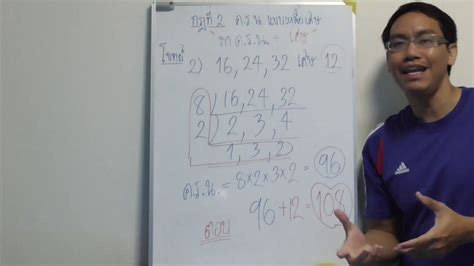 กฎที่ 2 ค.ร.น แบบเหลือเศษ
"หา ค.ร.น + เศษ"
โจทย์ 2) 16, 24, 32 เศษ 12
8 16, 24, 32
2 2, 3, 4
1, 3, 2
ค.ร.น. = 8×2×3×2 = 96
96 + 12 = 108
ตอบ
adidas